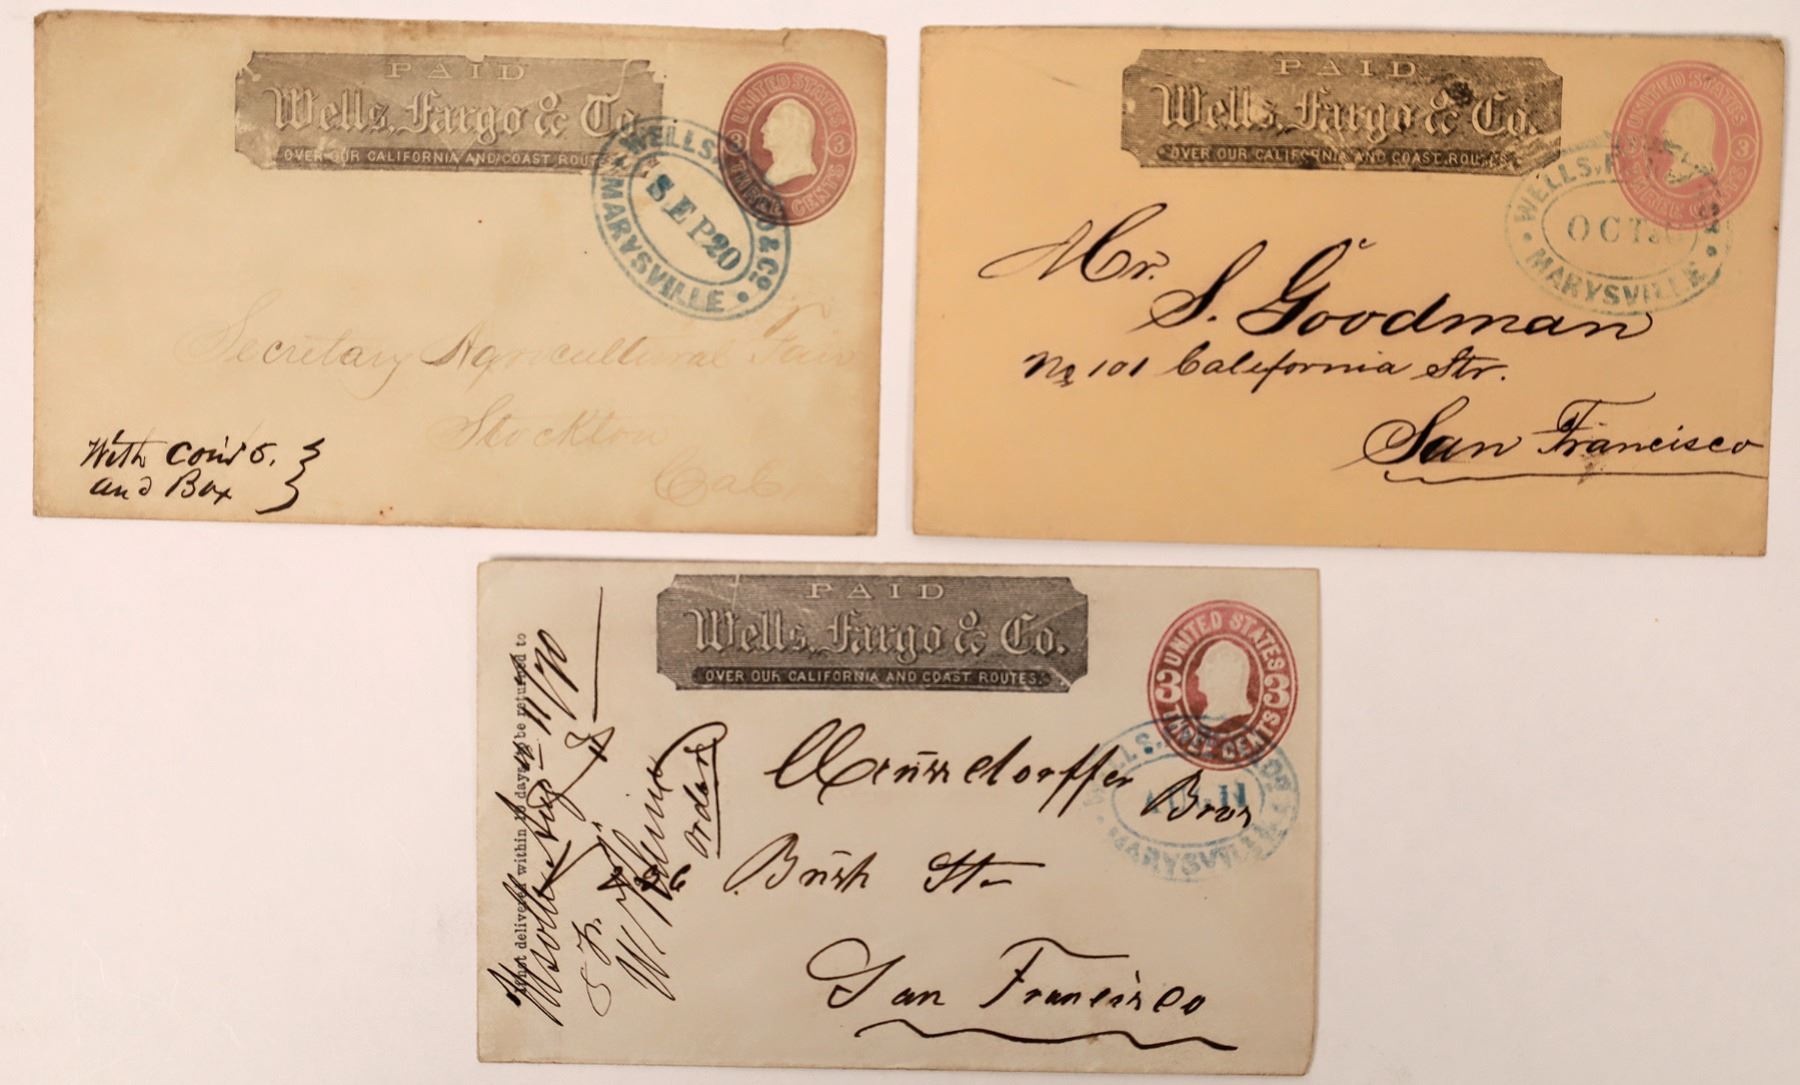 PAID
Wells, Fargo & Co.
OVER OUR CALIFORNIA AND COAST ROUTES
UNITED STATES
3 3
THREE CENTS
WELLS, FARGO & Co.
SEP 20
MARYSVILLE
Secretary Agricultural Fair
Stockton
Cal
With coin
and Box
PAID
Wells, Fargo & Co.
OVER OUR CALIFORNIA AND COAST ROUTES.
UNITED STATES
3
THREE CENTS
WELLS, F
OCT
MARYSVILLE
Mr.
S. Goodman
No 101 California Str.
San Francisco
PAID
Wells, Fargo & Co.
OVER OUR CALIFORNIA AND COAST ROUTES.
UNITED STATES
3 3
THREE CENTS
WELLS,
AUG 11
MARYSVILLE
Meussdorffer
Bros
Bush St
San Francisco
not delivered within 10 days to be returned to
Msville Aug 11/70
order